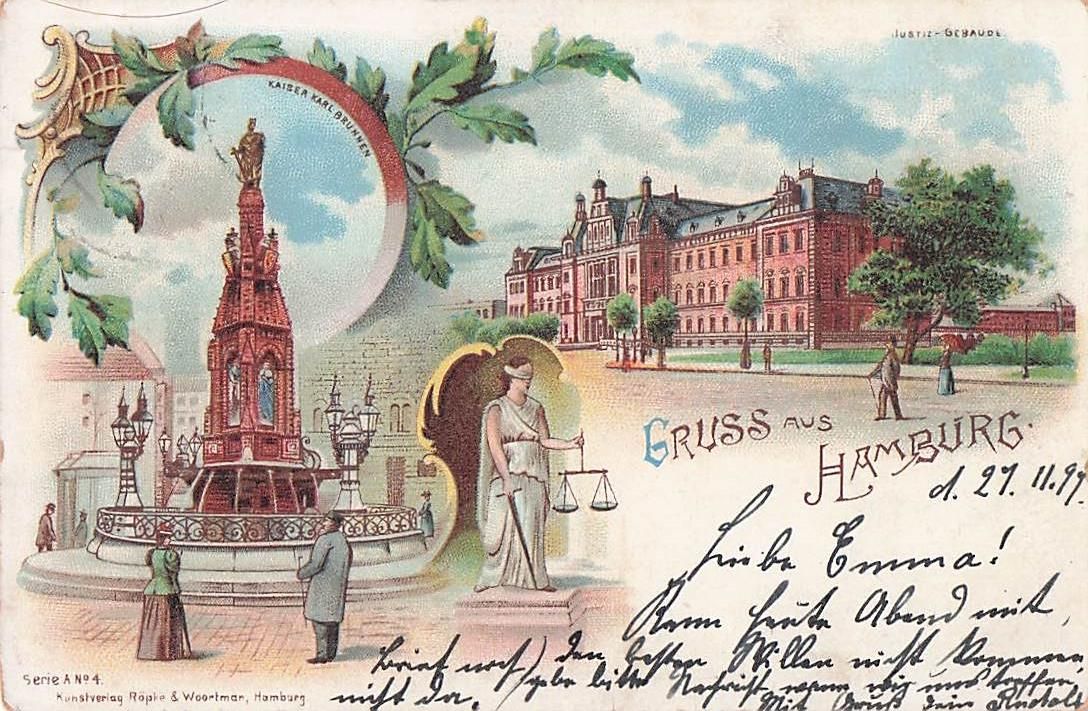 JUSTIZ-GEBÄUDE
KAISER KARL BRUNNEN
GRUSS AUS
HAMBURG.
d. 27. 11. 97.
Liebe Emma!
Kann heute Abend mit
den besten Willen nicht kommen
Brief noch
nicht da.
gebe bitte Nachricht, wann wir uns treffen,
Mit Gruß dein Rudolf
Serie A No 4.
Kunstverlag Röpke & Woortman, Hamburg.